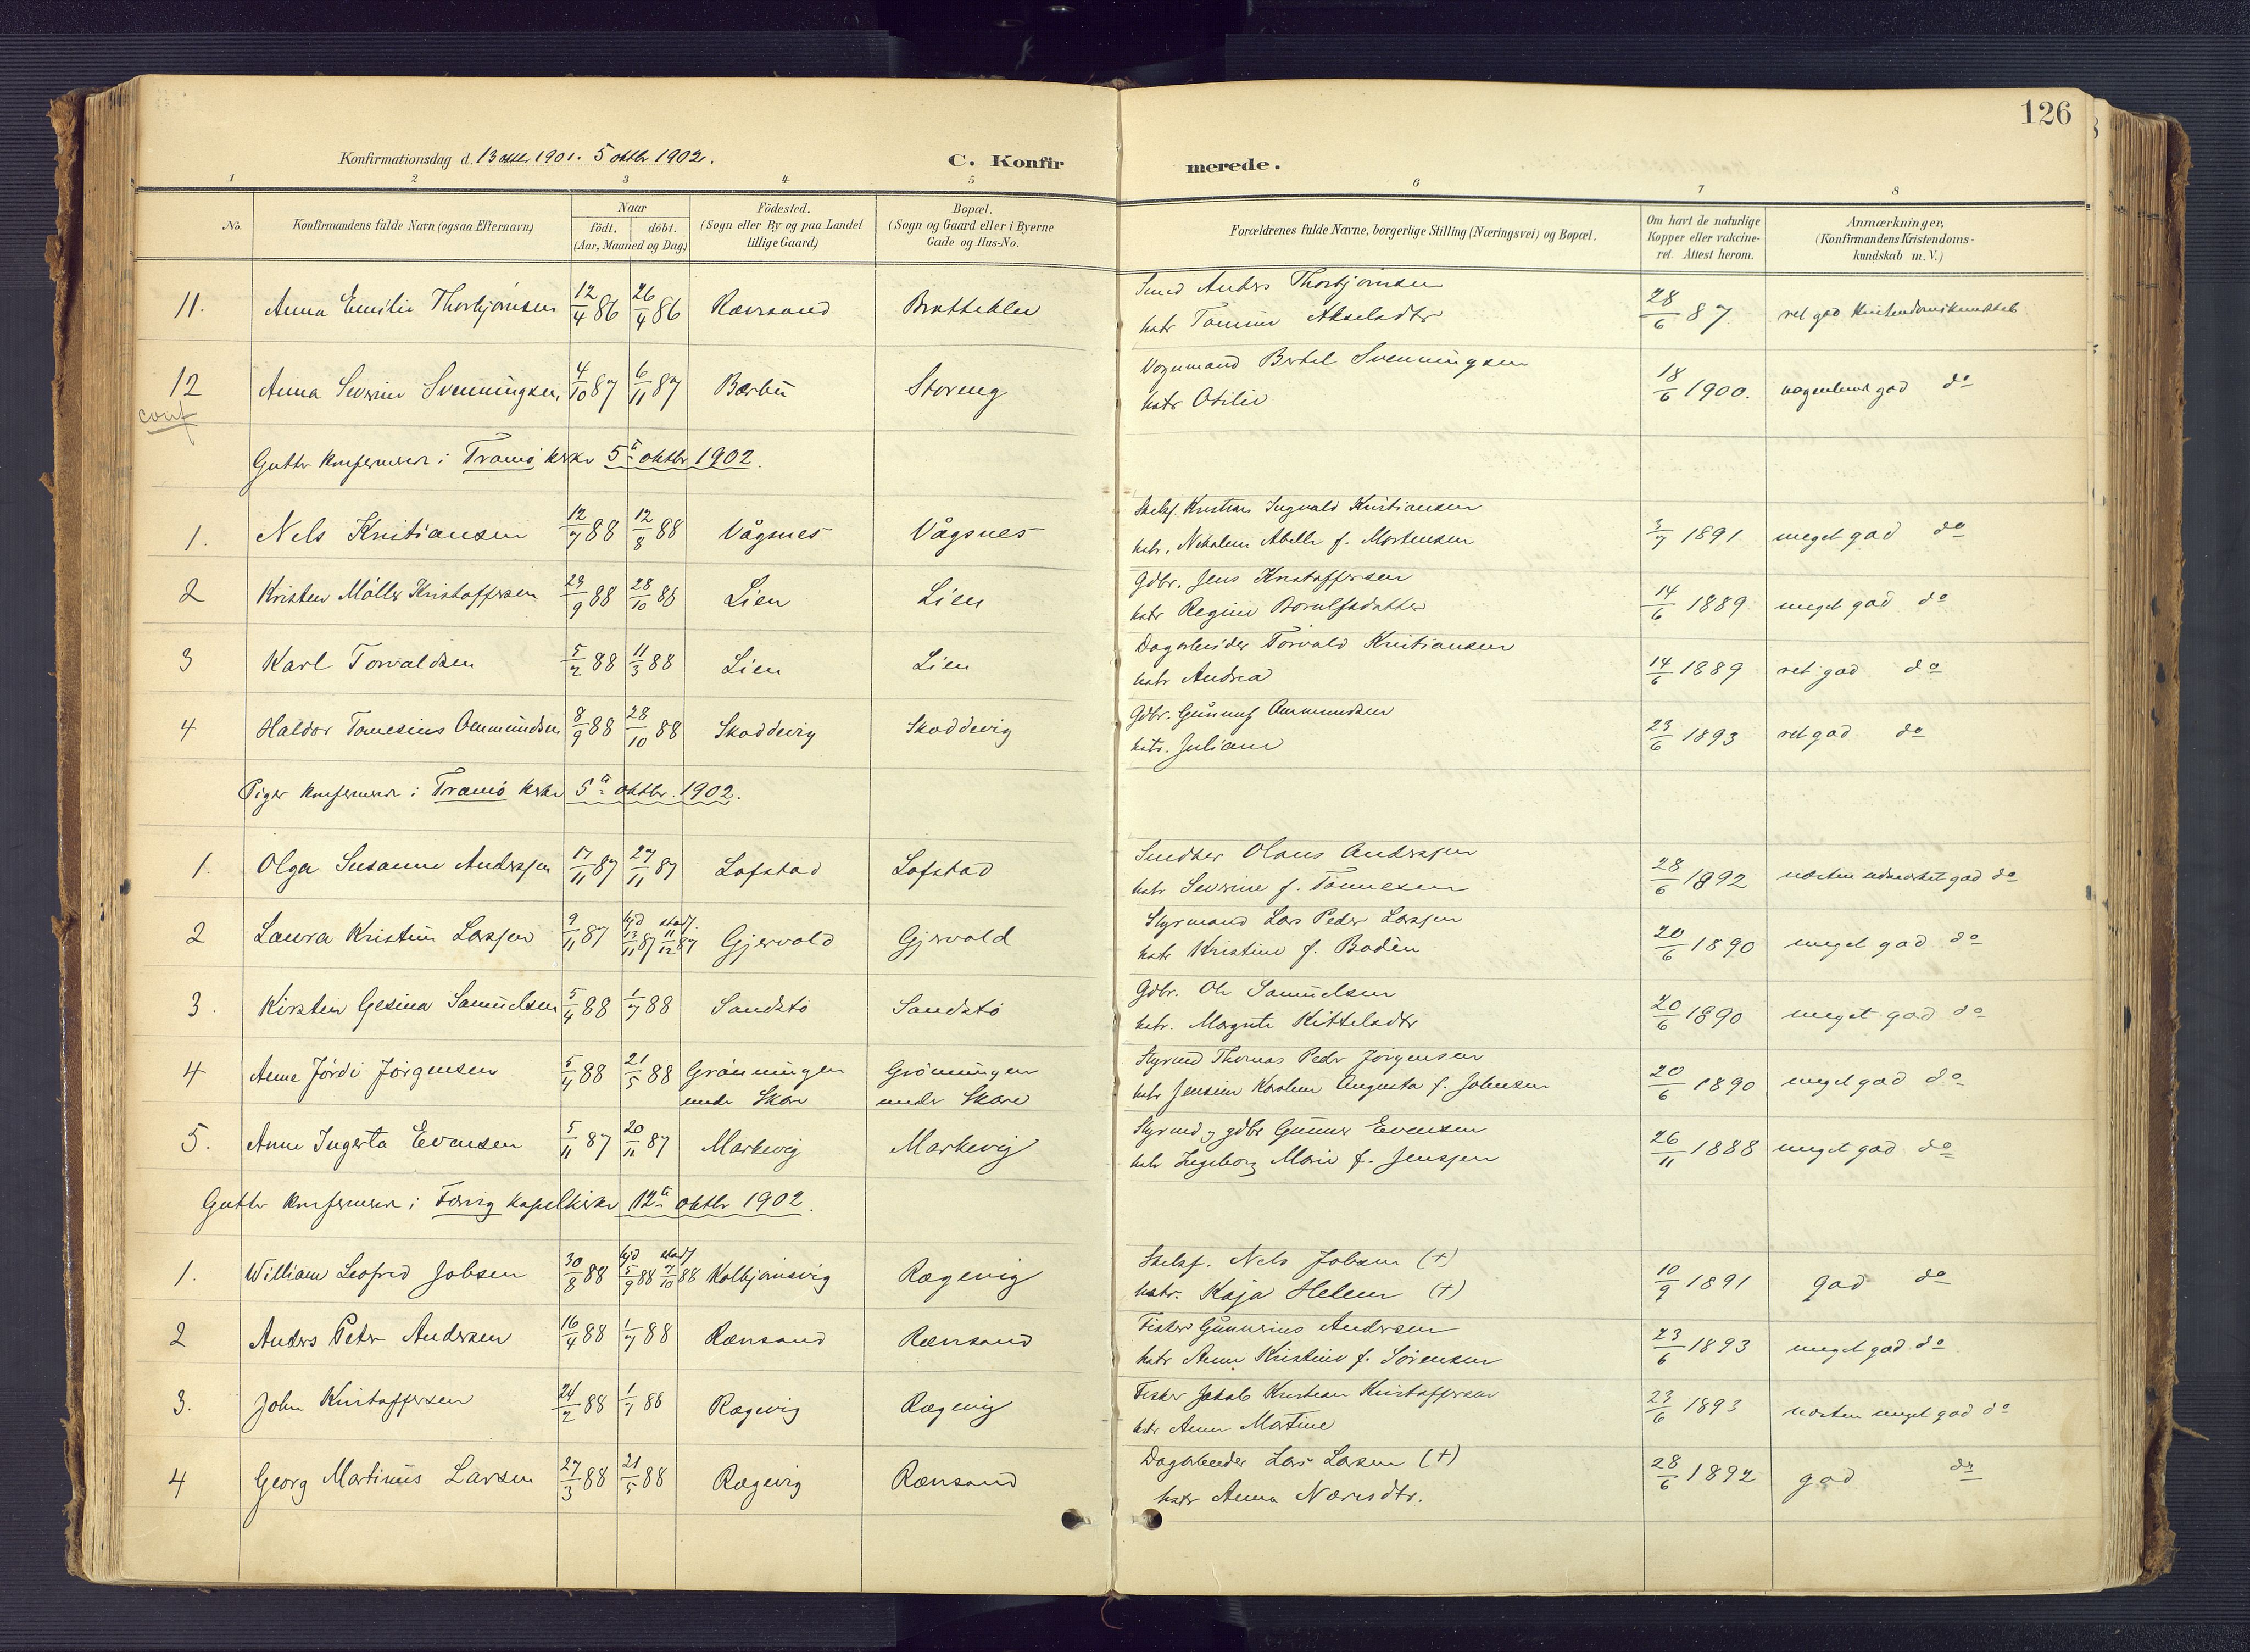 126
Konfirmationsdag d. 13 oktbr. 1901. 5 oktbr 1902.
C. Konfirmerede.
1 2 3 4 5 6 7 8
No.
Konfirmandens fulde Navn (ogsaa Efternavn)
Naar
födt. döbt.
(Aar, Maaned og Dag)
Födested.
(Sogn eller By og paa Landet
tillige Gaard)
Bopæl.
(Sogn og Gaard eller i Byerne
Gade og Hus-No.
Forældrenes fulde Navne, borgerlige Stilling (Næringsvei) og Bopæl.
Om havt de naturlige
Kopper eller vakcine-
ret. Attest herom.
Anmærkninger,
(Konfirmandens Kristendoms-
kundskab m. V.)
11. Anna Emilie Thorbjørnsen 12/4 86 26/4 86 Rævesand Bratteklev
Smed Anders Thorbjørnsen
hstr Tomine Akselsdtr
28/6 87. ret god Kristendomskundskab
12 Anna Severine Svenningsen 4/10 87 6/11 87 Barbu Storeng
conf
Vognmand Bertel Svenningsen
hstr Otilie
18/6 1900. god do
Gutter konfirmerede i Tromø kirke 5te oktbr 1902.
1. Nels Kristiansen 12/7 88 12/8 88 Vågsnes Vågsnes
Skibsf. Kristian Ingvald Kristiansen
hstr. Nikoline Abelle f. Mortensen
3/7 1891 meget god do
2 Kristen Møller Kristoffersen 23/9 88 28/10 88 Lien Lien
Gdbr. Jens Kristoffersen
hstr Regine Torulfsdatter
14/6 1889 meget god do
3 Karl Torvaldsen 5/2 88 11/3 88 Lien Lien
Dagarbeider Torvald Kristiansen
hstr Andrea
14/6 1889 ret god do
4 Haldor Tomesius Ommundsen 8/9 88 28/10 88 Skoddevig Skoddevig
Gdbr. Gunnuf Ommundsen
hstr. Juliane
23/6 1893 ret god do
Piger konfirmerede i Tromø kirke 5te oktbr. 1902.
1. Olga Susanne Anderssen 17/11 87 27/11 87 Lofstad Lofstad
Snedker Olaus Anderssen
hstr Severine f. Tønnesen
28/6 1892 næsten udmærket god do
2 Laura Kristine Larssen 9/11 87 hjd 13/11 87 stadf. 11/12 87 Gjervold Gjervold
Styrmand Lars Peder Larssen
hstr Kristine f. Bodèn
20/6 1890 meget god do
3. Kirsten Gesina Samuelsen 5/4 88 1/7 88 Sandstø Sandstø
Gdbr. Ole Samuelsen
hstr. Margrete Kittelsdtr
20/6 1890 meget god do
4 Anne Jørdi Jørgensen 5/4 88 21/5 88 Grønningen Grønningen
under Skare under Skare
Styrmd Thomas Peder Jørgensen
hstr Jensine Karoline Augusta f. Johnsen
20/6 1890 meget god do
5. Anne Ingerta Evensen 5/11 87 20/11 87 Markevig Markevig
Styrmd og gdbr Gunner Evensen
hstr Ingeborg Marie f. Jenssen
26/11 1888 meget god do
Gutter konfirmerede i Færvig kapelkirke 12te oktbr 1902.
1. William Leofred Jobsen 30/8 88 hjd 5/9 88 stadf 7/10 88 Kolbjørnsvig Rægevig
Skibsf. Nels Jobsen (+)
hstr. Kaja Helene (+)
10/9 1891 god do
2 Anders Peter Andersen 16/4 88 1/7 88 Rævesand Rævesand
Fisker Gunnerius Andersen
hstr Anne Kristine f. Sørensen
23/6 1893 meget god do
3. John Kristoffersen 24/2 88 1/7 88 Rægevig Rægevig
Fisker Jakob Kristian Kristoffersen
hstr Anne Martine
23/6 1893 næsten meget god do
4 Georg Martinius Larsen 27/3 88 21/5 88 Rægevig Rævesand
Dagarbeider Lars Larsen (+)
hstr Anna Næresdtr.
28/6 1892 god do